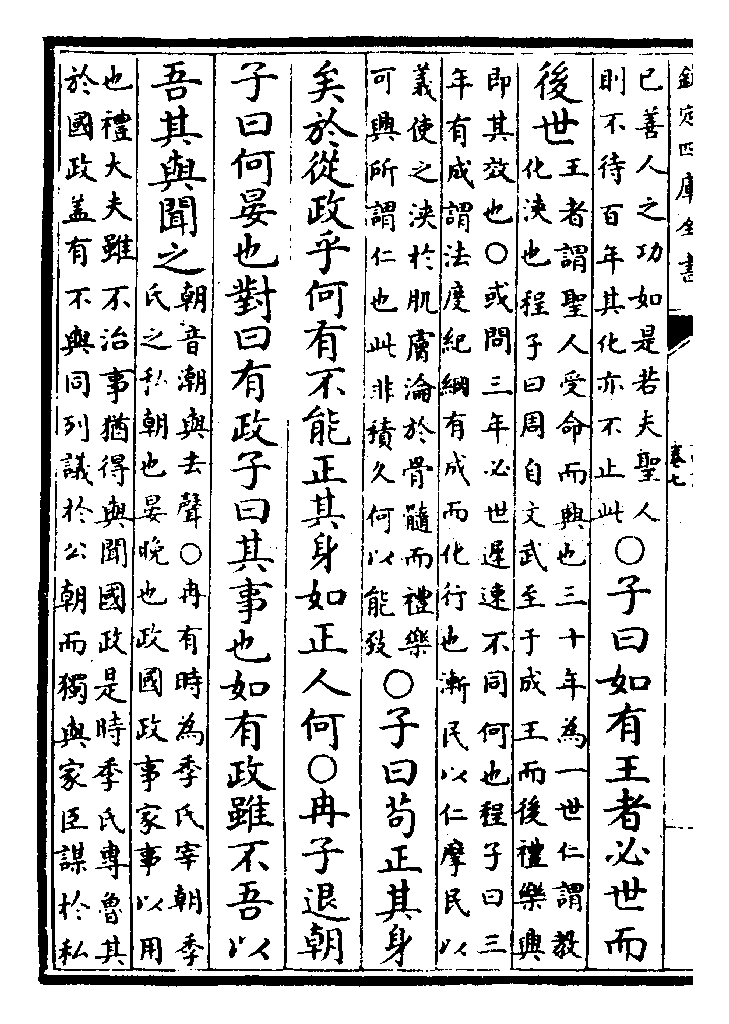 欽定四庫全書
卷七
已善人之功如是若夫聖人
則不待百年其化亦不止此
○子曰如有王者必世而
後世
王者謂聖人受命而興也三十年為一世仁謂教
化浹也程子曰周自文武至于成王而後禮樂興
即其效也○或問三年必世遲速不同何也程子曰三
年有成謂法度紀綱有成而化行也漸民以仁摩民以
義使之浹於肌膚淪於骨髓而禮樂
可興所謂仁也此非積久何以能致
○子曰苟正其身
矣於從政乎何有不能正其身如正人何○冉子退朝
子曰何晏也對曰有政子曰其事也如有政雖不吾以
吾其與聞之
朝音潮與去聲○冉有時為季氏宰朝季
氏之私朝也晏晚也政國政事家事以用
也禮大夫雖不治事猶得與聞國政是時季氏專魯其
於國政盖有不與同列議於公朝而獨與家臣謀於私